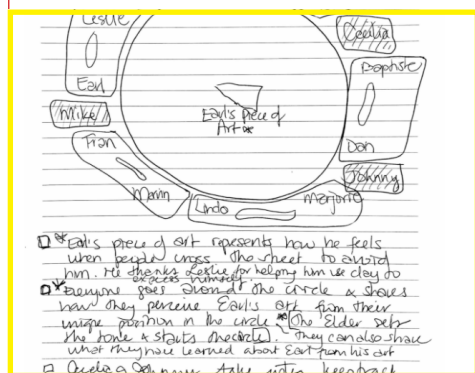 Leslie
Cecilia
Baptiste
Earl
Earl's piece of
Art *
Mike
Fran
Dan
Johnny
Marvin
Linda
Marjorie
* Earl's piece of art represents how he feels
when people cross the street to avoid
him. He thanks Leslie for helping him use clay to
express himself
* Everyone goes around the circle & shares
how they perceive Earl's art from their
unique position in the circle. * (The Elder sets
the tone & starts the circle). They can also share
what they have learned about Earl from his art
take notes feedback